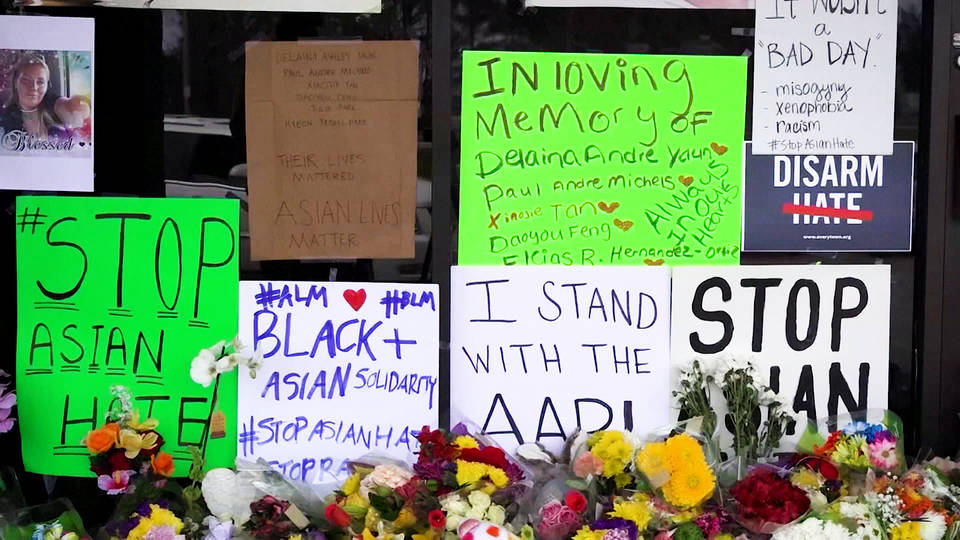 Blessed
DELAINA ASHLEY YAUN
PAUL ANDRE MICHELS
XIAOJIE TAN
DAOYOU FENG
JULIE PARK
HYEON JEONG PARK
THEIR LIVES
MATTERED
ASIAN LIVES
MATTER
IN loving
MeMory oF
Delaina Andre Yaun
Paul Andre Michels
Xiaojie Tan
Daoyou Feng
Elcias R. Hernandez-Ortiz
Always
In our
Hearts
IT WASN'T
a
"BAD DAY."
- misogyny
- xenophobia
- racism
#StopAsianHate
DISARM
HATE
www.everytown.org
#STOP
ASIAN
HATE
#ALM #BLM
BLACK +
ASIAN SOLIDARITY
#STOPASIANHA
STOPRA
I STAND
WITH THE
AAPI
STOP